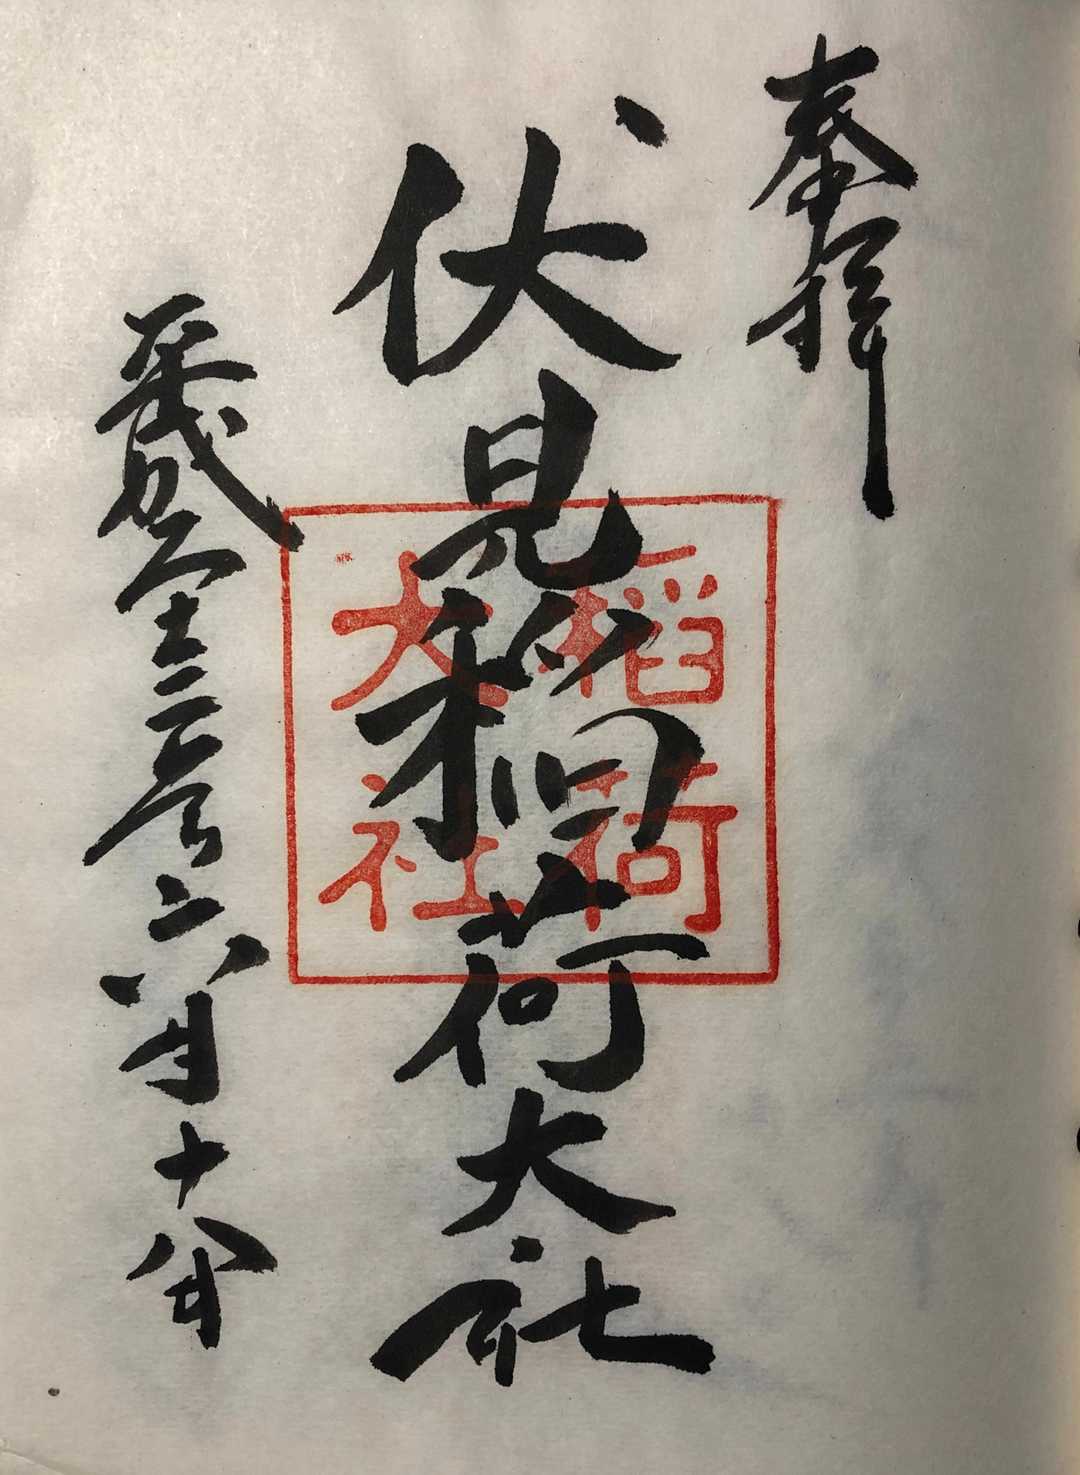 奉拝
伏見稲荷大社
稲荷
大社
平成二十 年六月十八日